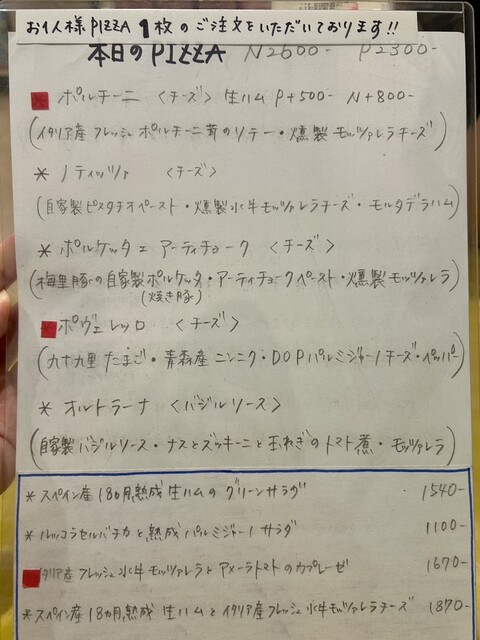 お1人様 PIZZA 1枚のご注文をいただいております!!
本日のPIZZA N2600- P2300-
* ポルチーニ 〈チーズ〉 生ハム P+500- N+800-
(イタリア産 フレッシュ ポルチーニ茸のソテー・燻製モッツァレラチーズ)
* ノティッツァ 〈チーズ〉
(自家製ピスタチオペースト・燻製水牛モッツァレラチーズ・モルタデラハム)
* ポルケッタ エ アーティチョーク 〈チーズ〉
(梅里豚の自家製ポルケッタ・アーティチョークペースト・燻製モッツァレラ)
(焼き豚)
* ポヴェレッロ 〈チーズ〉
(九十九里たまご・青森産ニンニク・DOPパルミジャーノチーズ・ペッパー)
* オルトラーナ 〈バジルソース〉
(自家製バジルソース・ナスとズッキーニと玉ねぎのトマト煮・モッツァレラ)
* スペイン産18ヵ月熟成 生ハムのグリーンサラダ 1540-
* ルッコラセルバチカと熟成パルミジャーノサラダ 1100-
イタリア産フレッシュ水牛モッツァレラとアメーラトマトのカプレーゼ 1670-
* スペイン産18ヵ月熟成 生ハムとイタリア産フレッシュ水牛モッツァレラチーズ 1870-